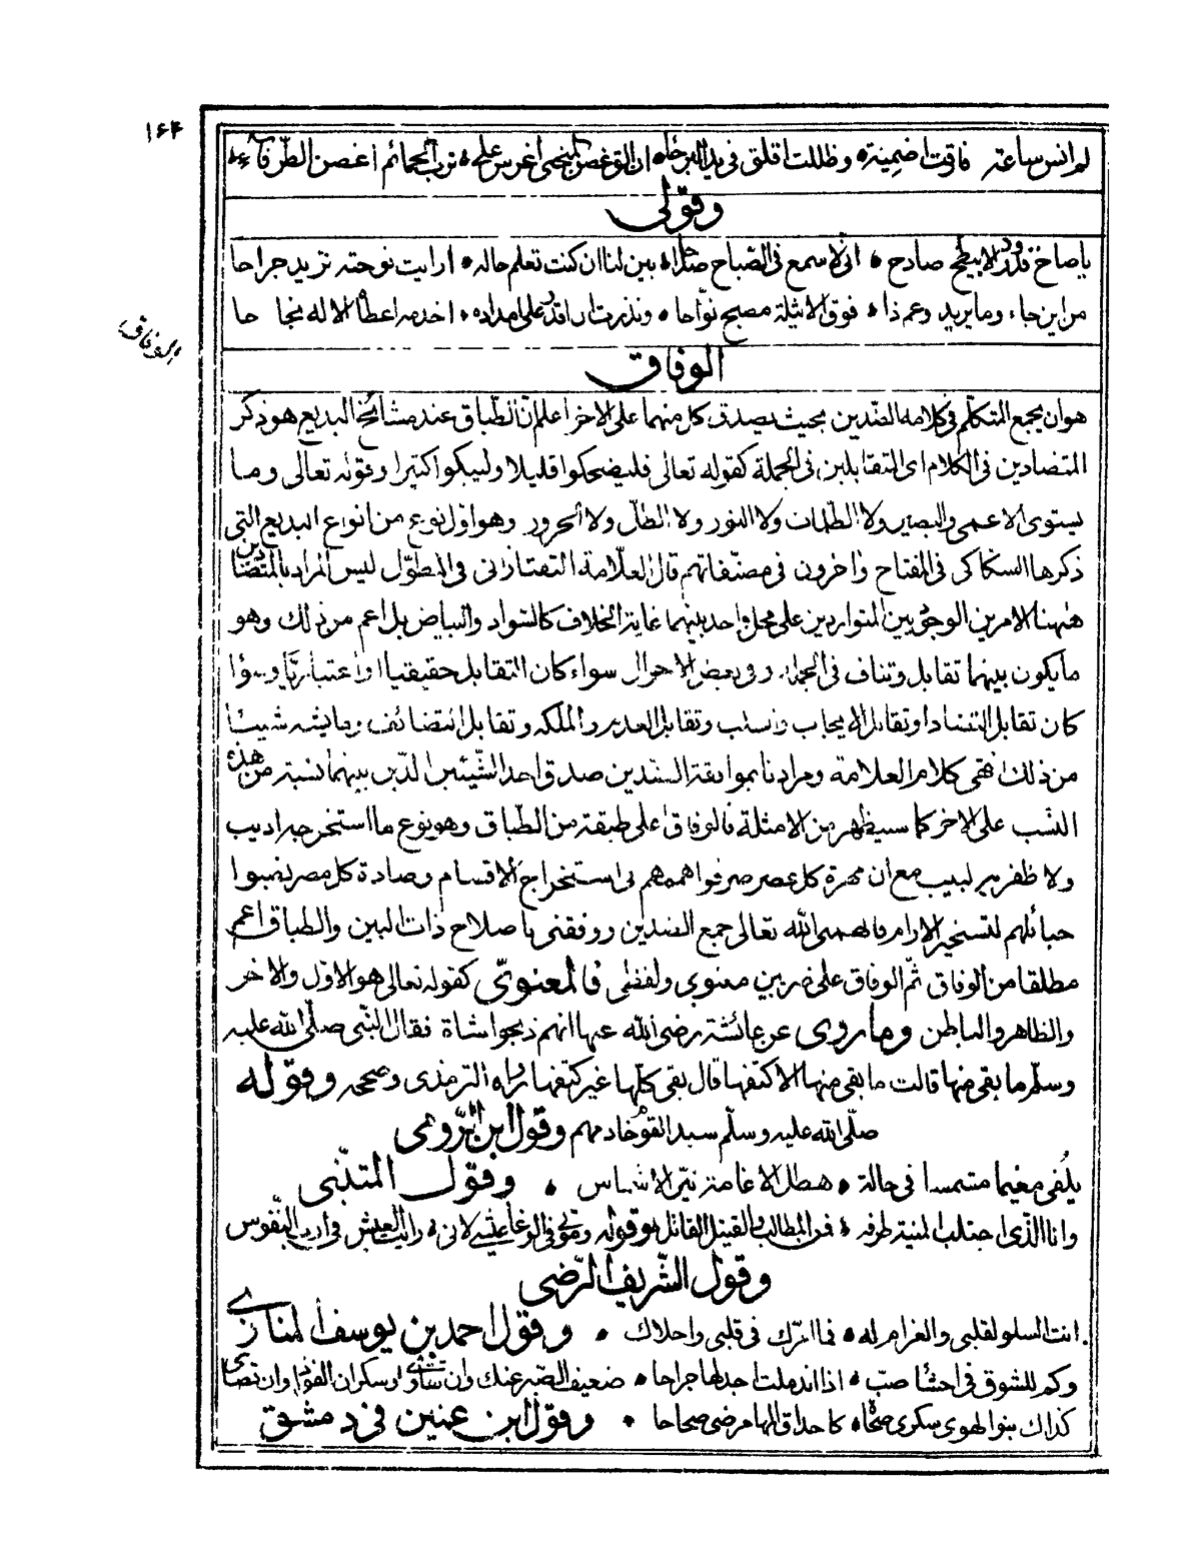 ١٦٤
لم انس ساعة فارقت اضمينة وظللت اقلق فى يد البرحاء ان القوغصن اغرس عليه ترب الحمائم اغصن الطرفاء
وقولى
يا صاخ قدر ود لابيطح صادح انى لاسمع فى الصباح صداه بين لنا ان كنت تعلم حاله ارايت نوحته تزيد جراحا
من اين جاء وما يريد وعم ذا فوق الاثيلة مصبح نواحا ونذرت اقد على امداده اخدمه اعطا الاله نجاحا
الوفاق
الوفاق
هو ان يجمع المتكلم فى كلامه الضدين بحيث يصدق كل منهما على الاخر اعلم ان الطباق عند مشائخ البديع هو ذكر
المتضادين فى الكلام اى المتقابلين فى الجملة كقوله تعالى فليضحكوا قليلا وليبكوا كثيرا وقوله تعالى وما
يستوى الاعمى والبصير ولا الظلمات ولا النور ولا الظل ولا الحرور وهو اول نوع من انواع البديع التى
ذكرها السكاكى فى المفتاح واخرون فى مصنفاتهم قال العلامة التفتازانى فى المطول ليس المراد بالمتضادين
ههنا الامرين الوجوديين المتواردين على محل واحد بينهما غاية الخلاف كالسواد والبياض بل اعم من ذلك وهو
ما يكون بينهما تقابل وتناف فى الجملة وفى بعض الاحوال سواء كان التقابل حقيقيا او اعتباريا وسواء
كان تقابل التضاد او تقابل الايجاب والسلب وتقابل العدم والملكه وتقابل التضائف وما يشبه شيئا
من ذلك انتهى كلام العلامة ومرادنا بموافقة الضدين صدق احد الشيئين الذين بينهما نسبة من هذه
النسب على الاخر كما سيظهر من الامثلة فالوفاق اعلى طبقة من الطباق وهو نوع ما استخرجه اديب
ولا ظفر به لبيب مع ان مهرة كل عصر صرفوا هممهم فى استخراج الاقسام وصادة كل مصر نصبوا
حبائلهم لتسخير الارام فالهمنى الله تعالى جمع الضدين ووفقنى باصلاح ذات البين والطباق اعم
مطلقا من الوفاق ثم الوفاق على ضربين معنوى ولفظى فالمعنوى كقوله تعالى هو الاول والاخر
والظاهر والباطن وما روى عن عائشة رضى الله عنها انهم ذبحوا شاة فقال النبى صلى الله عليه
وسلم ما بقى منها قالت ما بقى منها الا كتفها قال بقى كلها غير كتفها رواه الترمذى وصححه وقوله
صلى الله عليه وسلم سيد القوم خادمهم وقول ابن الرومى
يلفى مغيما مشمسا فى حالة هطل الاغامة نير الاشماس وقول المتنبى
وانا الذى اجتلب المنية طرفه فمن المطالب والقتيل القاتل وقوله وموتى فى الوغا عيشى لانى رايت العيش فى ارب النفوس
وقول الشريف الرضى
انت السلو لقلبى والغرام له فما امرك فى قلبى واحلاك وقول احمد بن يوسف المنازى
وكم للشوق فى احشا صب اذا اندملت اجد لها جراحا ضعيف الصبر عنك وان تساوى وسكران الفؤاد وان تصاحى
كذاك بنو الهوى سكرى صحاة كاحداق المها مرضى صحاحا وقول ابن عنين فى دمشق